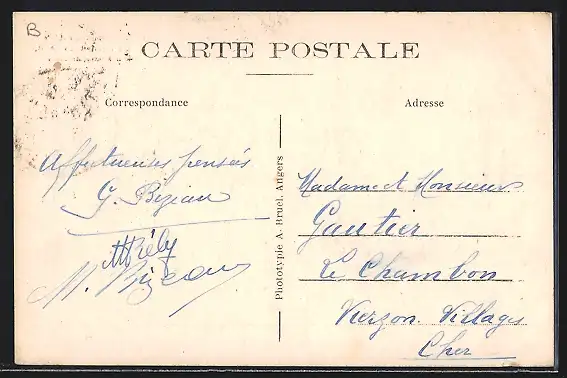 B
CARTE POSTALE
Correspondance
Adresse
Affectueuses pensées
G. Bizeau
M. Bizeau
Phototypie A. Bruel, Angers
Madame et Monsieur
Gautier
Le Chambon
Vierzon. Villages
Cher